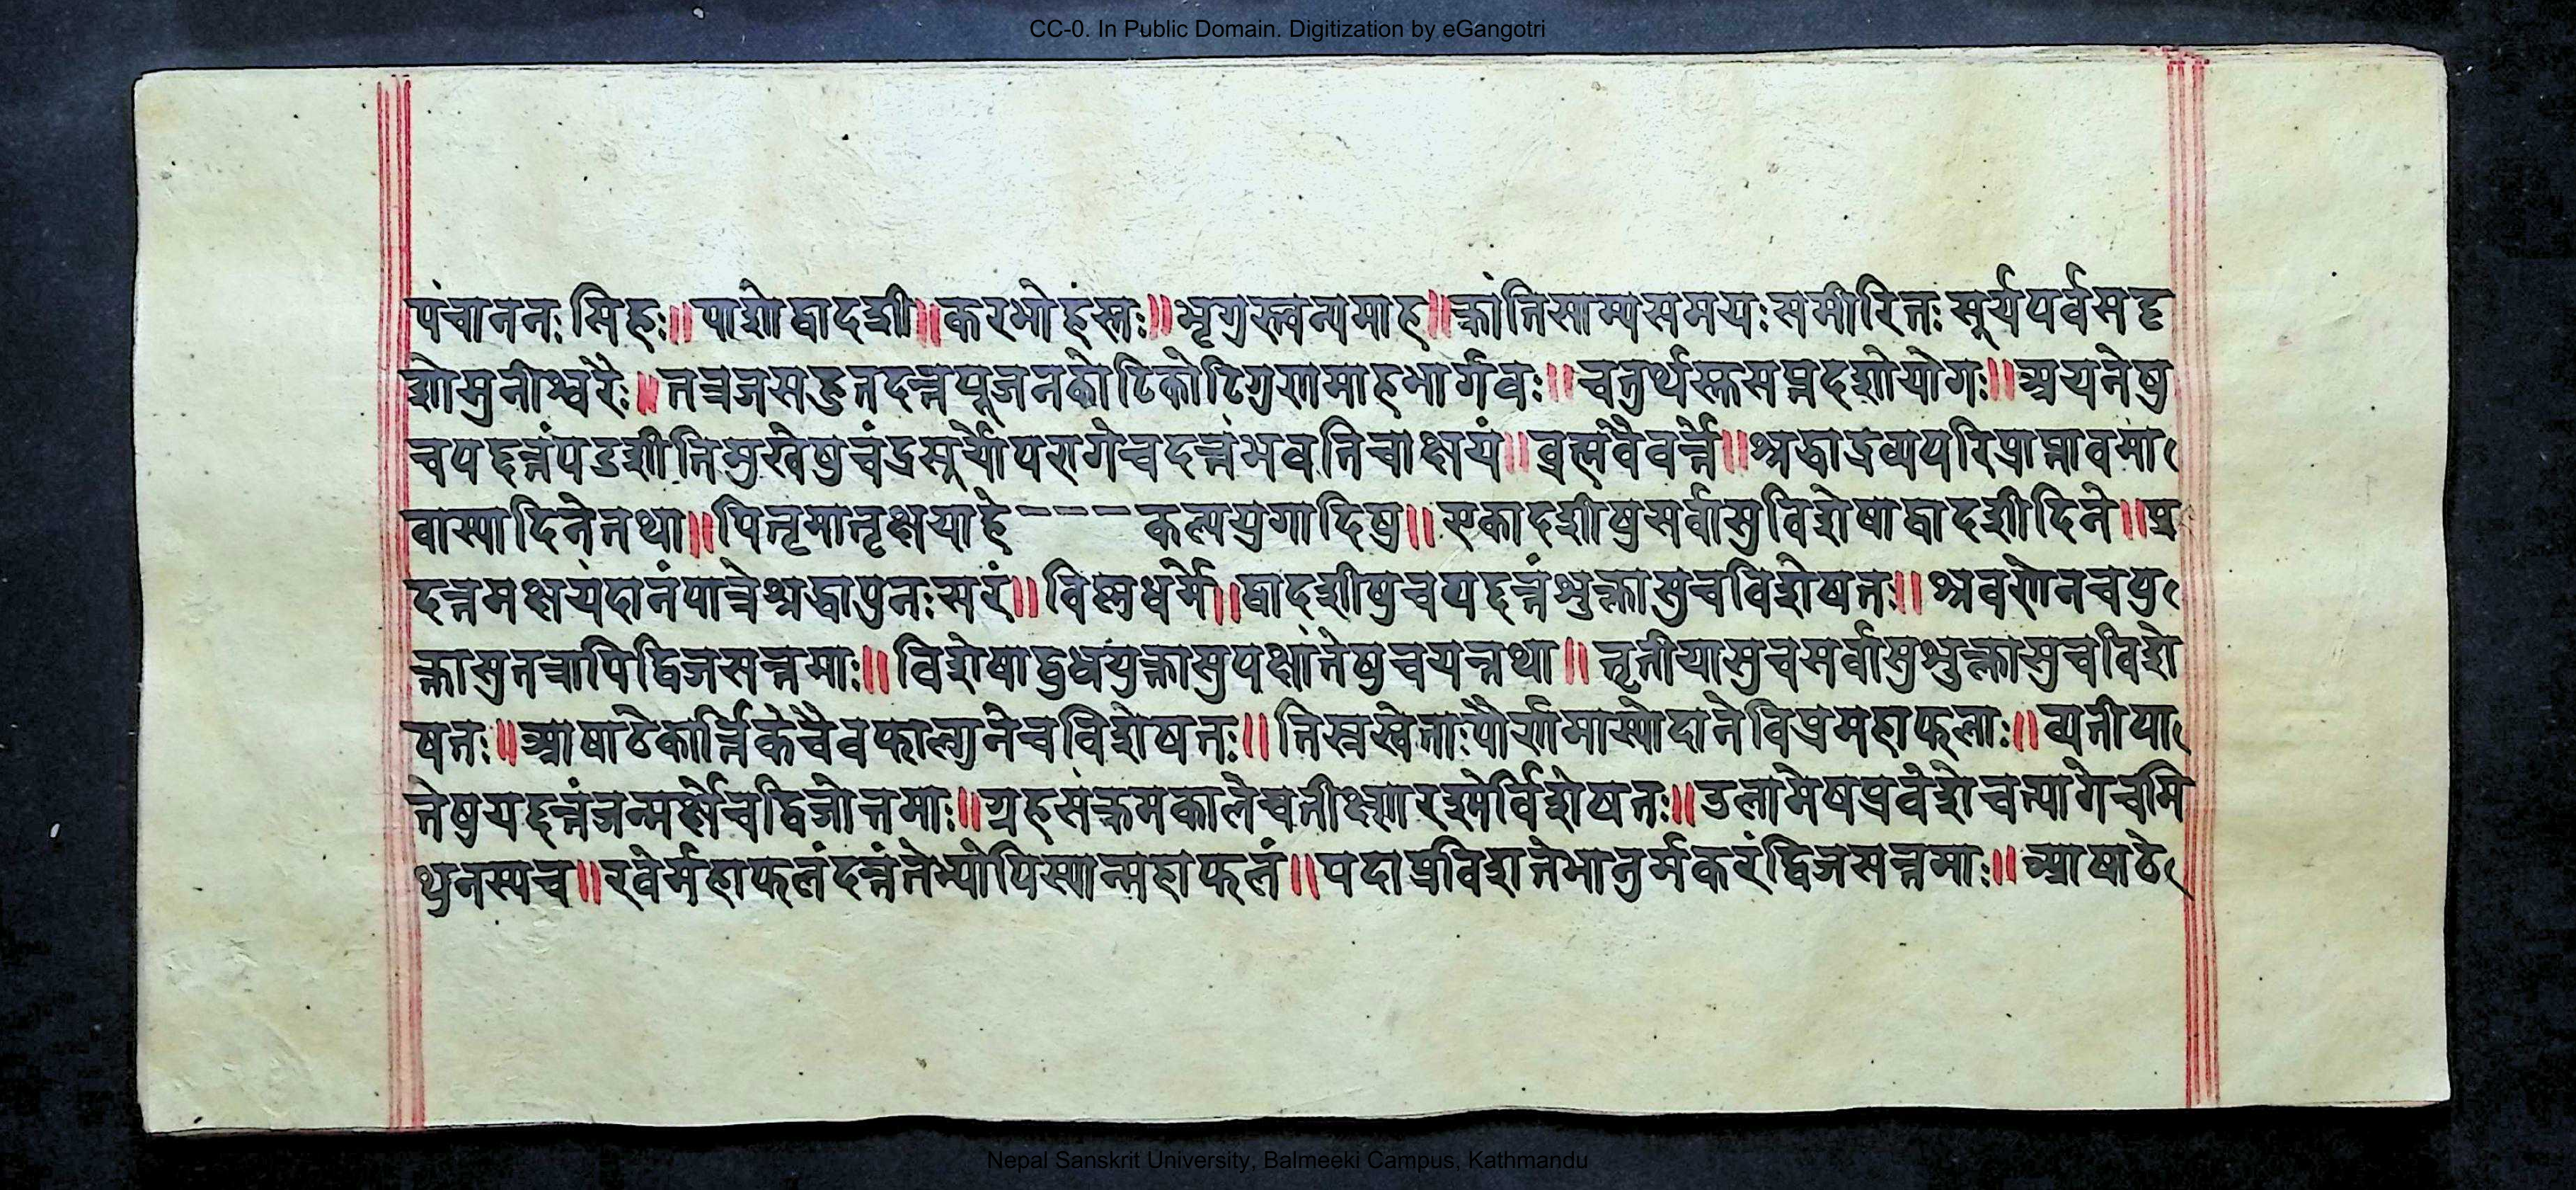 CC-0. In Public Domain. Digitization by eGangotri
पंचाननः सिंहः॥ पाशो द्वादशी॥ करभो हस्तः॥ भृगुस्त्वन्यमाह॥ क्रांतिसाम्यसमयः समीरितः सूर्यपर्वसदृ
शो मुनीश्वरैः॥ तत्र जप्तहुतदत्तपूजनकोटिकोटिगुणमाह भार्गवः॥ चतुर्थस्तु सप्तदशो योगः॥ अयनेषु
च यद्दत्तं षडशीतिमुखेषु चंद्रसूर्योपरागे च दत्तं भवति चाक्षयं॥ ब्रह्मवैवर्त्ते॥ श्रद्धाद्रव्यपरिप्राप्तावमा
वास्यादिने तथा॥ पितृमातृक्षयाहे --- कल्पयुगादिषु॥ एकादशीषु सर्वासु विशेषाद्वादशीदिने॥ प्र
दत्तमक्षयं दानं पात्रे श्रद्धापुनःसरं॥ विष्णुधर्मे॥ द्वादशीषु च यद्दत्तं शुक्लासु च विशेषतः॥ श्रवणेन च यु
क्तासु तत्रापि द्विजसत्तमाः॥ विशेषाद्बुधयुक्तासु पक्षांतेषु च यत्तथा॥ तृतीयासु च सर्वासु शुक्लासु च विशे
षतः॥ आषाढे कार्त्तिके चैव फाल्गुने च विशेषतः॥ तिस्रस्त्वेताः पौर्णमास्यो दाने विप्र महाफलाः॥ व्यतीपा
तेषु यद्दत्तं जन्मर्क्षे च द्विजोत्तमाः॥ ग्रहसंक्रमकाले च तीक्ष्णरश्मेर्विशेषतः॥ तुलामेषप्रवेशे च त्यागे च मि
थुनस्य च॥ रवेर्महाफलं दत्तं तेभ्योपि स्यान्महाफलं॥ यदा प्रविशते भानुर्मकरं द्विजसत्तमाः॥ आषाढे
Nepal Sanskrit University, Balmeeki Campus, Kathmandu